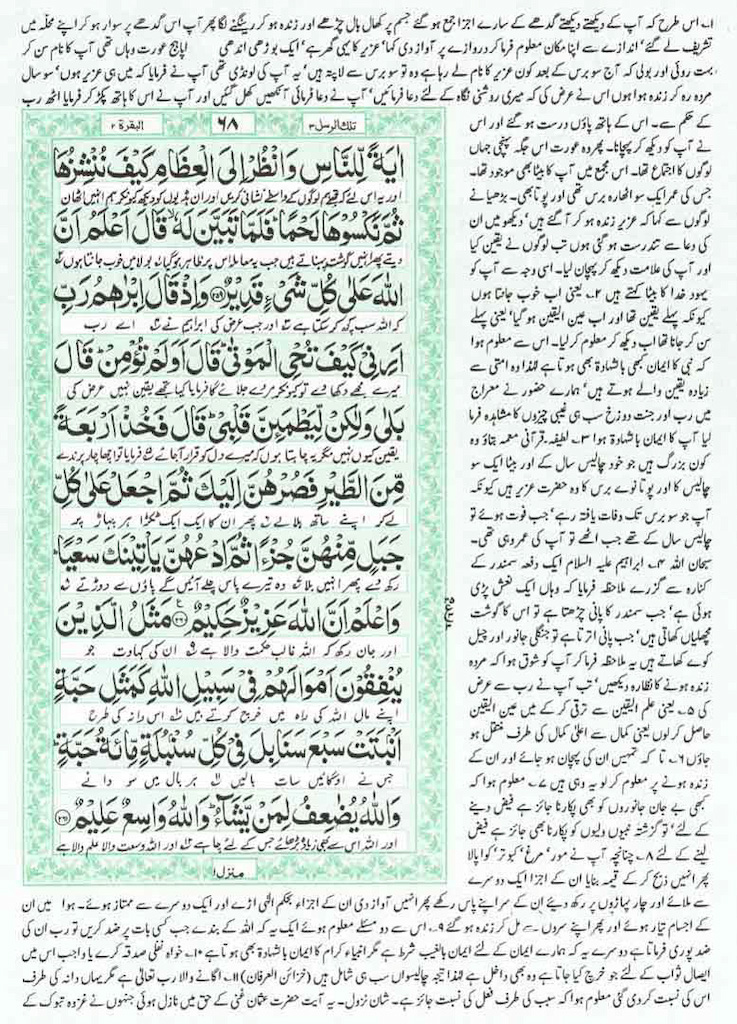 ۱۔ اس طرح کہ آپ کے دیکھتے دیکھتے گدھے کے سارے اجزا جمع ہو گئے جسم پر کھال بال چڑھے اور زندہ ہو کر رینگنے لگا پھر آپ اس گدھے پر سوار ہو کر اپنے محلہ میں
تشریف لے گئے' اندازے سے اپنا مکان معلوم فرما کر دروازے پر آواز دی کہا' عزیر کا یہی گھر ہے' ایک بوڑھی اندھی اپاہج عورت وہاں تھی آپ کا نام سن کر
بہت روئی اور بولی کہ آج سو برس کے بعد کون عزیر کا نام لے رہا ہے وہ تو سو برس سے لاپتہ ہیں' یہ آپ کی لونڈی تھی آپ نے فرمایا کہ میں ہی عزیر ہوں' سو سال
مردہ رہ کر زندہ ہوا ہوں اس نے عرض کی کہ میری روشنی نگاہ کے لئے دعا فرمائیں' آپ نے دعا فرمائی آنکھیں کھل گئیں اور آپ نے اس کا ہاتھ پکڑ کر فرمایا اٹھ رب
کے حکم سے۔ اس کے ہاتھ پاؤں درست ہو گئے اور اس
نے آپ کو دیکھ کر پہچانا۔ پھر وہ عورت اس جگہ پہنچی جہاں
لوگوں کا اجتماع تھا۔ اس مجمع میں آپ کا بیٹا بھی موجود تھا۔
جس کی عمر ایک سو اٹھارہ برس تھی اور پوتا بھی۔ بڑھیا نے
لوگوں سے کہا کہ عزیر زندہ ہو کر آ گئے ہیں' دیکھو میں ان
کی دعا سے تندرست ہو گئی ہوں تب لوگوں نے یقین کیا
اور آپ کی علامت دیکھ کر پہچان لیا۔ اسی وجہ سے آپ کو
یہود خدا کا بیٹا کہتے ہیں ۲۔ یعنی اب خوب جانتا ہوں
کیونکہ پہلے یقین تھا اور اب عین الیقین ہو گیا' یعنی پہلے
سن کر جانا تھا اب دیکھ کر معلوم کر لیا۔ اس سے معلوم ہوا
کہ نبی کا ایمان بھی بالشہادۃ بھی ہوتا ہے لہذا وہ امتی سے
زیادہ یقین والے ہوتے ہیں' ہمارے حضور نے معراج
میں رب اور جنت دوزخ سب ہی غیبی چیزوں کا مشاہدہ فرما
لیا آپ کا ایمان بالشہادۃ ہوا ۳۔ لطیفہ۔ قرآنی معمہ بتاؤ وہ
کون بزرگ ہیں جو خود چالیس سال کے اور بیٹا ایک سو
چالیس کا اور پوتا نوے برس کا وہ حضرت عزیر ہیں کیونکہ
آپ جو سو برس تک وفات یافتہ رہے' جب فوت ہوئے تو
چالیس سال کے تھے جب اٹھے تو آپ کی عمر وہی تھی۔
سبحان اللہ ۴۔ ابراہیم علیہ السلام ایک دفعہ سمندر کے
کنارہ سے گزرے ملاحظہ فرمایا کہ وہاں ایک نعش پڑی
ہوئی ہے' جب سمندر کا پانی چڑھتا ہے تو اس کا گوشت
مچھلیاں کھاتی ہیں' جب پانی اترتا ہے تو جنگلی جانور اور چیل
کوے کھاتے ہیں یہ ملاحظہ فرما کر آپ کو شوق ہوا کہ مردہ
زندہ ہونے کا نظارہ دیکھیں' تب آپ نے رب سے عرض
کی ۵۔ یعنی علم الیقین سے ترقی کر کے میں عین الیقین
حاصل کر لوں یعنی کمال سے اعلیٰ کمال کی طرف منتقل ہو
جاؤں ۶۔ تا کہ تمہیں ان کی پہچان ہو جائے اور ان کے
زندہ ہونے پر معلوم کر لو یہ وہی ہیں ۷۔ معلوم ہوا کہ
کبھی بے جان جانوروں کو بھی پکارنا جائز ہے فیض دینے
کے لئے' تو گزشتہ نبیوں ولیوں کو پکارنا بھی جائز ہے فیض
لینے کے لئے ۸۔ چنانچہ آپ نے مور' مرغ' کبوتر' کوا پالا
پھر انہیں ذبح کر کے قیمہ بنایا ان کے اجزا ایک دوسرے
سے ملائے اور چار پہاڑوں پر رکھ دیئے ان کے سر اپنے پاس رکھے پھر انہیں آواز دی ان کے اجزاء بحکم الٰہی اڑے اور ایک دوسرے سے ممتاز ہوئے۔ ہوا میں ان
کے اجسام تیار ہوئے اور پھر اپنے سروں سے مل کر زندہ ہو گئے ۹۔ اس سے دو مسئلے معلوم ہوئے ایک یہ کہ اللہ کے بندے جب کسی بات پر ضد کریں تو رب ان کی
ضد پوری فرماتا ہے دوسرے یہ کہ ہمارے ایمان کے لئے ایمان بالغیب شرط ہے مگر انبیاء کرام کا ایمان بالشہادۃ بھی ہوتا ہے ۱۰۔ خواہ نفلی صدقہ کرے یا واجب اس میں
ایصال ثواب کے لئے جو خرچ کیا جاتا ہے وہ بھی داخل ہے لہذا تیجہ چالیسواں سب ہی شامل ہیں (خزائن العرفان) ۱۱۔ اگانے والا رب تعالیٰ ہے مگر یہاں دانہ کی طرف
اس کی نسبت کر دی گئی معلوم ہوا کہ سبب کی طرف فعل کی نسبت جائز ہے۔ شان نزول۔ یہ آیت حضرت عثمان غنی کے حق میں نازل ہوئی جنہوں نے غزوہ تبوک کے
تلک الرسل ۳ ۶۸ البقرۃ ۲
اٰيَةً لِّلنَّاسِ وَانْظُرْ اِلَى الْعِظَامِ كَيْفَ نُنْشِزُهَا
اور یہ اس لئے کہ تجھے ہم لوگوں کے واسطے نشانی کریں اور ان ہڈیوں کو دیکھ کیونکر ہم انہیں اٹھان
ثُمَّ نَكْسُوْهَا لَحْمًا ؕ فَلَمَّا تَبَيَّنَ لَهٗ ۙ قَالَ اَعْلَمُ اَنَّ
دیتے پھر انہیں گوشت پہناتے ہیں جب یہ معاملہ اس پر ظاہر ہو گیا بولا میں خوب جانتا ہوں
اللّٰهَ عَلٰى كُلِّ شَيْءٍ قَدِيْرٌ ﴿۲۵۹﴾ وَاِذْ قَالَ اِبْرٰهٖمُ رَبِّ
کہ اللہ سب کچھ کر سکتا ہے اور جب عرض کی ابراہیم نے اے رب
اَرِنِيْ كَيْفَ تُحْيِ الْمَوْتٰى ؕ قَالَ اَوَلَمْ تُؤْمِنْ ؕ قَالَ
میرے مجھے دکھا دے تو کیونکر مردے جلائے گا فرمایا کیا تجھے یقین نہیں عرض کی
بَلٰى وَلٰكِنْ لِّيَطْمَئِنَّ قَلْبِيْ ؕ قَالَ فَخُذْ اَرْبَعَةً
یقین کیوں نہیں مگر یہ چاہتا ہوں کہ میرے دل کو قرار آجائے فرمایا تو اچھا چار پرندے
مِّنَ الطَّيْرِ فَصُرْهُنَّ اِلَيْكَ ثُمَّ اجْعَلْ عَلٰى كُلِّ
لے کر اپنے ساتھ ہلا لے پھر ان کا ایک ایک ٹکڑا ہر پہاڑ پر
جَبَلٍ مِّنْهُنَّ جُزْءًا ثُمَّ ادْعُهُنَّ يَاْتِيْنَكَ سَعْيًا ؕ
رکھ دے پھر انہیں بلا وہ تیرے پاس چلے آئیں گے پاؤں سے دوڑتے
وَاعْلَمْ اَنَّ اللّٰهَ عَزِيْزٌ حَكِيْمٌ ﴿۲۶۰﴾ مَثَلُ الَّذِيْنَ
اور جان رکھ کہ اللہ غالب حکمت والا ہے ان کی کہاوت جو
يُنْفِقُوْنَ اَمْوَالَهُمْ فِيْ سَبِيْلِ اللّٰهِ كَمَثَلِ حَبَّةٍ
اپنے مال اللہ کی راہ میں خرچ کرتے ہیں اس دانہ کی طرح
اَنْۢبَتَتْ سَبْعَ سَنَابِلَ فِيْ كُلِّ سُنْۢبُلَةٍ مِّائَةُ حَبَّةٍ ؕ
جس نے اوگائیں سات بالیں ہر بال میں سو دانے
وَاللّٰهُ يُضٰعِفُ لِمَنْ يَّشَآءُ ؕ وَاللّٰهُ وَاسِعٌ عَلِيْمٌ ﴿۲۶۱﴾
اور اللہ اس سے بھی زیادہ بڑھائے جس کے لئے چاہے اور اللہ وسعت والا علم والا ہے
منزل ۱